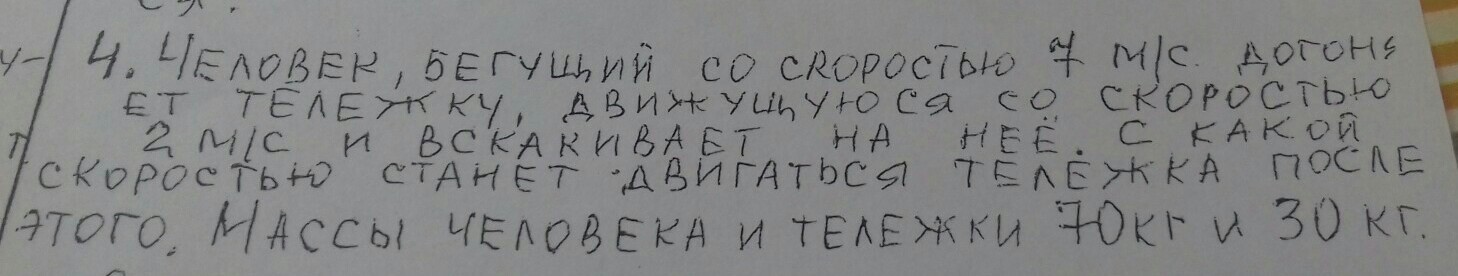 4. ЧЕЛОВЕК, БЕГУЩИЙ СО СКОРОСТЬЮ 7 М/С. ДОГОНЯ
ЕТ ТЕЛЕЖКУ, ДВИЖУЩУЮСЯ СО СКОРОСТЬЮ
2 М/С И ВСКАКИВАЕТ НА НЕЁ. С КАКОЙ
СКОРОСТЬЮ СТАНЕТ ДВИГАТЬСЯ ТЕЛЕЖКА ПОСЛЕ
ЭТОГО. МАССЫ ЧЕЛОВЕКА И ТЕЛЕЖКИ 70КГ И 30 КГ.